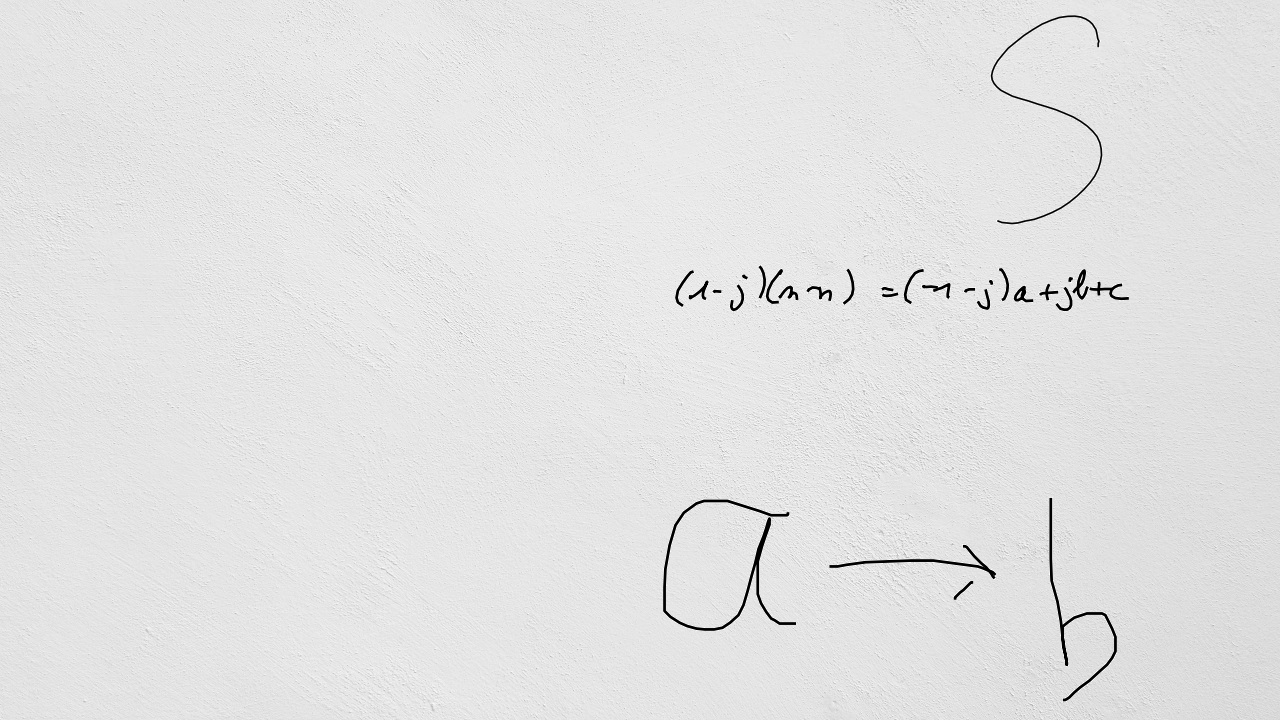 S
(1-j)(n-n) = (-1-j)a+jb+c
a → b